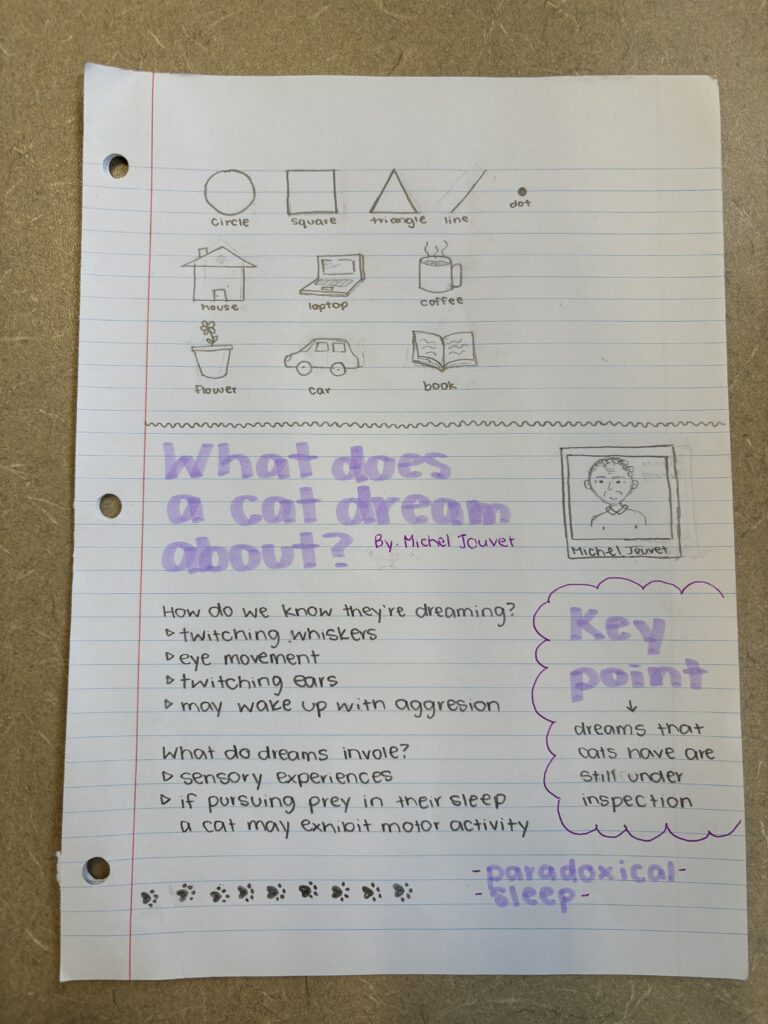 circle square triangle line dot
house laptop coffee
flower car book
What does
a cat dream
about? By. Michel Jouvet
Michel Jouvet
How do we know they're dreaming?
▷ twitching whiskers
▷ eye movement
▷ twitching ears
▷ may wake up with aggresion
What do dreams invole?
▷ sensory experiences
▷ if pursuing prey in their sleep
a cat may exhibit motor activity
Key
point
↓
dreams that
cats have are
still under
inspection
-paradoxical-
-sleep-